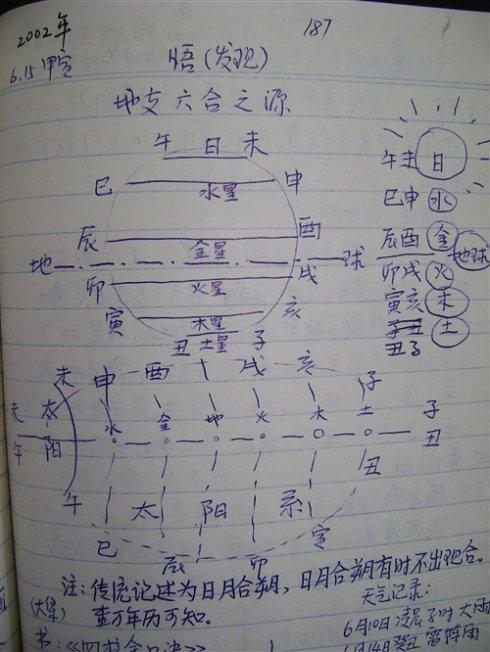 2002年
187
6.15 甲寅
悟(发现)
地支六合之源
午 日 未
巳 水星 申
辰 金星 酉
地 球
卯 火星 戌
寅 木星 亥
丑 土星 子
午未 日
巳申 水
辰酉 金
地球
卯戌 火
寅亥 木
丑子 土
未 申 酉 戌 亥 子
未 太 水 金 地 火 木 土 子
午 阳 丑
午 太 阳 系 丑
巳 辰 卯 寅
注:传统记述为日月合朔,日月合朔有时不出现合。
查万年历可知。
天气记录:
6月10日凌晨子时大雨
6月14癸丑 雷阵雨